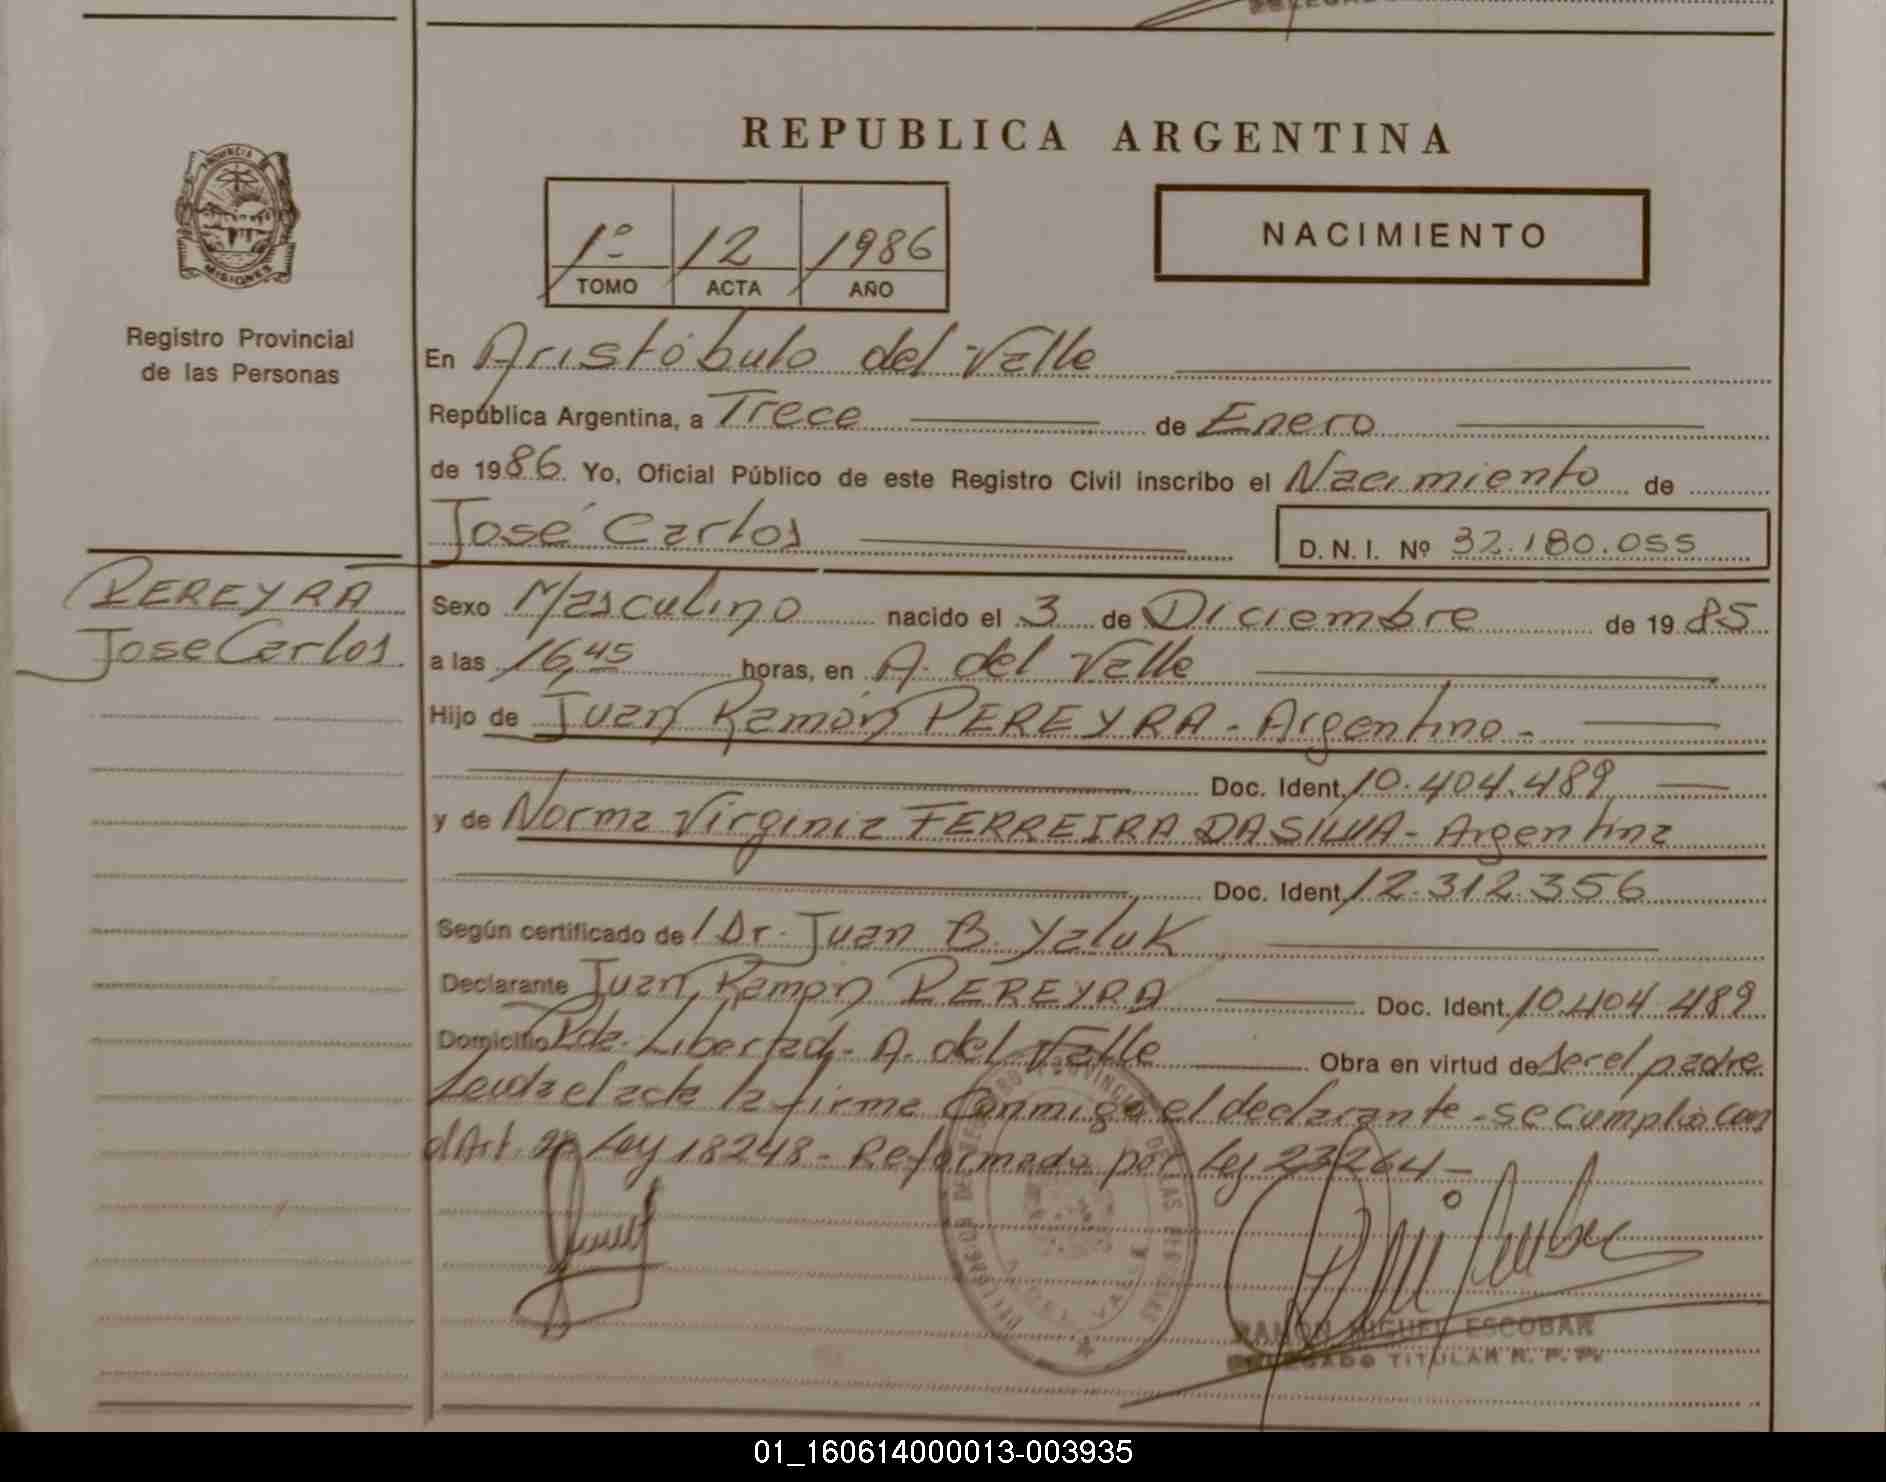 PROVINCIA
MISIONES
Registro Provincial
de las Personas
PEREYRA
Jose Carlos
REPUBLICA ARGENTINA
1º 12 1986
TOMO ACTA AÑO
NACIMIENTO
En Aristóbulo del Valle
República Argentina, a Trece de Enero
de 1986. Yo, Oficial Público de este Registro Civil inscribo el Nacimiento de
José Carlos D. N. I. Nº 32.180.055
Sexo Masculino nacido el 3 de Diciembre de 1985
a las 16,45 horas, en A. del Valle
Hijo de Juan Ramón PEREYRA - Argentino -
Doc. Ident. 10.404.489
y de Norma Virginia FERREIRA DASILVA - Argentina
Doc. Ident. 12.312.356
Según certificado de Dr. Juan B. Yaluk
Declarante Juan Ramón PEREYRA Doc. Ident. 10.404.489
Domicilio Pda. Libertad - A. del Valle Obra en virtud de ser el padre
Leida el acta la firma conmigo el declarante - se cumplio con
el Art. Ley 18248 - Reformado por Ley 23264 -
A. DEL VALLE
RAMON MIGUEL ESCOBAR
DELEGADO TITULAR R. P. P.
01_160614000013-003935